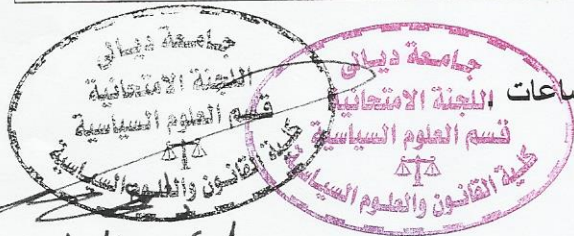 جامعة ديالى
اللجنة الامتحانية
قسم العلوم السياسية
كلية القانون والعلوم السياسية
جامعة ديالى
اللجنة الامتحانية
قسم العلوم السياسية
كلية القانون والعلوم السياسية